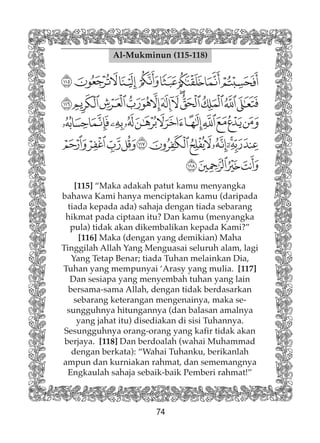 Al-Mukminun (115-118)
أَفَحَسِبْتُمْ أَنَّمَا خَلَقْنَٰكُمْ عَبَثًا وَأَنَّكُمْ إِلَيْنَا لَا تُرْجَعُونَ ١١٥
فَتَعَٰلَى ٱللَّهُ ٱلْمَلِكُ ٱلْحَقُّ ۖ لَآ إِلَٰهَ إِلَّا هُوَ رَبُّ ٱلْعَرْشِ ٱلْكَرِيمِ ١١٦
وَمَن يَدْعُ مَعَ ٱللَّهِ إِلَٰهًا ءَاخَرَ لَا بُرْهَٰنَ لَهُۥ بِهِۦ فَإِنَّمَا حِسَابُهُۥ
عِندَ رَبِّهِۦٓ ۚ إِنَّهُۥ لَا يُفْلِحُ ٱلْكَٰفِرُونَ ١١٧ وَقُل رَّبِّ ٱغْفِرْ وَٱرْحَمْ
وَأَنتَ خَيْرُ ٱلرَّٰحِمِينَ ١١٨
[115] “Maka adakah patut kamu menyangka
bahawa Kami hanya menciptakan kamu (daripada
tiada kepada ada) sahaja dengan tiada sebarang
hikmat pada ciptaan itu? Dan kamu (menyangka
pula) tidak akan dikembalikan kepada Kami?”
[116] Maka (dengan yang demikian) Maha
Tinggilah Allah Yang Menguasai seluruh alam, lagi
Yang Tetap Benar; tiada Tuhan melainkan Dia,
Tuhan yang mempunyai ‘Arasy yang mulia. [117]
Dan sesiapa yang menyembah tuhan yang lain
bersama-sama Allah, dengan tidak berdasarkan
sebarang keterangan mengenainya, maka se-
sungguhnya hitungannya (dan balasan amalnya
yang jahat itu) disediakan di sisi Tuhannya.
Sesungguhnya orang-orang yang kafir tidak akan
berjaya. [118] Dan berdoalah (wahai Muhammad
dengan berkata): “Wahai Tuhanku, berikanlah
ampun dan kurniakan rahmat, dan sememangnya
Engkaulah sahaja sebaik-baik Pemberi rahmat!”
74